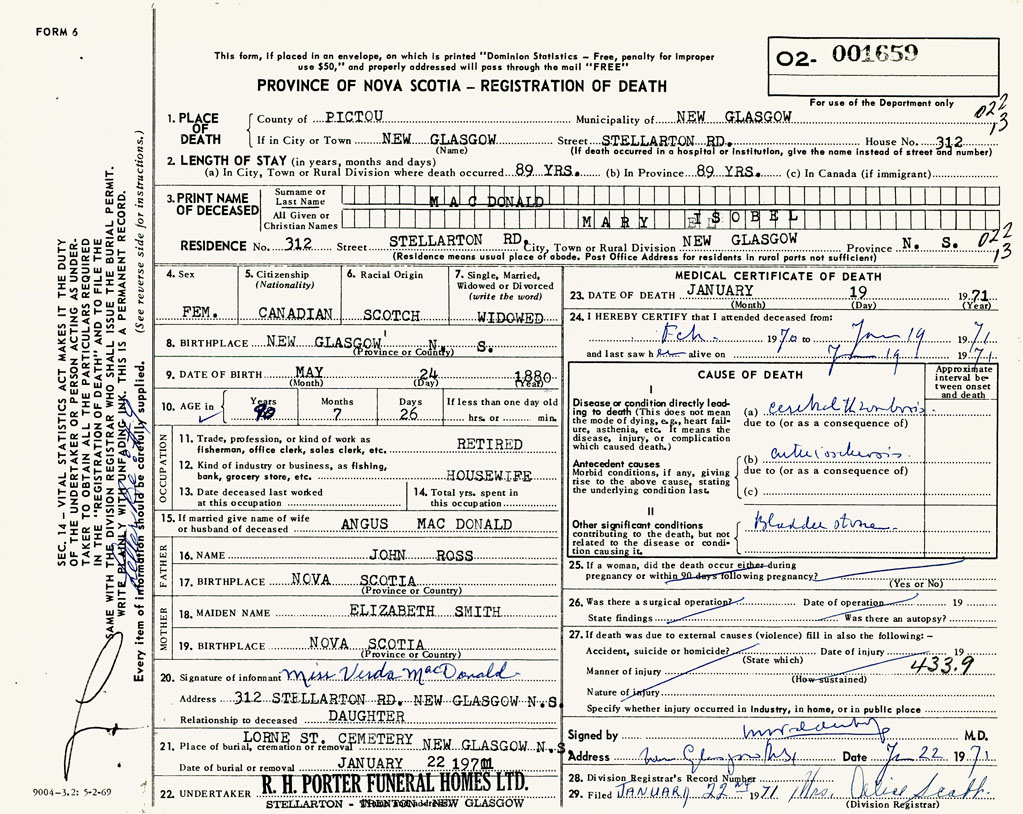 FORM 6
This form, if placed in an envelope, on which is printed "Dominion Statistics – Free, penalty for improper
use $50," and properly addressed will pass through the mail "FREE"
02- 001659
PROVINCE OF NOVA SCOTIA – REGISTRATION OF DEATH
For use of the Department only
022
13
1. PLACE OF DEATH
County of PICTOU Municipality of NEW GLASGOW
If in City or Town NEW GLASGOW Street STELLARTON RD. House No. 312
(Name) (If death occurred in a hospital or institution, give the name instead of street and number)
2. LENGTH OF STAY (in years, months and days)
(a) In City, Town or Rural Division where death occurred 89 YRS. (b) In Province 89 YRS. (c) In Canada (if immigrant)
3. PRINT NAME OF DECEASED
Surname or Last Name MAC DONALD
All Given or Christian Names MARY ISOBEL
RESIDENCE No. 312 Street STELLARTON RD. City, Town or Rural Division NEW GLASGOW Province N. S.
022
13
(Residence means usual place of abode. Post Office Address for residents in rural parts not sufficient)
4. Sex
FEM.
5. Citizenship
(Nationality)
CANADIAN
6. Racial Origin
SCOTCH
7. Single, Married,
Widowed or Divorced
(write the word)
WIDOWED
8. BIRTHPLACE NEW GLASGOW N. S.
(Province or Country)
9. DATE OF BIRTH MAY 24 1880
(Month) (Day) (Year)
10. AGE in
Years Months Days If less than one day old
90 7 26 hrs. or min.
OCCUPATION
11. Trade, profession, or kind of work as
fisherman, office clerk, sales clerk, etc. RETIRED
12. Kind of industry or business, as fishing,
bank, grocery store, etc. HOUSEWIFE
13. Date deceased last worked
at this occupation
14. Total yrs. spent in
this occupation
15. If married give name of wife
or husband of deceased ANGUS MAC DONALD
FATHER
16. NAME JOHN ROSS
17. BIRTHPLACE NOVA SCOTIA
(Province or Country)
MOTHER
18. MAIDEN NAME ELIZABETH SMITH
19. BIRTHPLACE NOVA SCOTIA
(Province or Country)
20. Signature of informant Miss Verda MacDonald
Address 312 STELLARTON RD. NEW GLASGOW N.S.
Relationship to deceased DAUGHTER
21. Place of burial, cremation or removal LORNE ST. CEMETERY NEW GLASGOW N.S.
Date of burial or removal JANUARY 22 1971
22. UNDERTAKER R. H. PORTER FUNERAL HOMES LTD.
STELLARTON - TRENTON - NEW GLASGOW
MEDICAL CERTIFICATE OF DEATH
23. DATE OF DEATH JANUARY 19 1971
(Month) (Day) (Year)
24. I HEREBY CERTIFY that I attended deceased from:
Feb 1970 to Jan 19 1971
and last saw her alive on Jan 19 1971
CAUSE OF DEATH
Approximate
interval be-
tween onset
and death
I
Disease or condition directly lead-
ing to death (This does not mean
the mode of dying, e.g., heart fail-
ure, asthenia, etc. It means the
disease, injury, or complication
which caused death.)
(a) cerebral thrombosis
due to (or as a consequence of)
Antecedent causes
Morbid conditions, if any, giving
rise to the above cause, stating
the underlying condition last.
(b) arteriosclerosis
due to (or as a consequence of)
(c)
II
Other significant conditions
contributing to the death, but not
related to the disease or condi-
tion causing it.
Bladder stone
25. If a woman, did the death occur either during
pregnancy or within 90 days following pregnancy?
(Yes or No)
26. Was there a surgical operation? Date of operation 19
State findings Was there an autopsy?
27. If death was due to external causes (violence) fill in also the following: –
Accident, suicide or homicide? Date of injury 19
(State which)
433.9
Manner of injury
(How sustained)
Nature of injury
Specify whether injury occurred in industry, in home, or in public place
Signed by M.D.
Address New Glasgow N.S. Date Jan 22 1971
28. Division Registrar's Record Number
29. Filed JANUARY 22nd 1971 Mrs. Alice Scott
(Division Registrar)
SEC. 14 – VITAL STATISTICS ACT MAKES IT THE DUTY
OF THE UNDERTAKER OR PERSON ACTING AS UNDER-
TAKER TO OBTAIN ALL THE PARTICULARS REQUIRED
IN THE "REGISTRATION OF DEATH" AND TO FILE THE
SAME WITH THE DIVISION REGISTRAR WHO SHALL ISSUE THE BURIAL PERMIT.
WRITE PLAINLY WITH UNFADING INK. THIS IS A PERMANENT RECORD.
Every item of information should be carefully supplied. (See reverse side for instructions.)
9004-3.2: 5-2-69